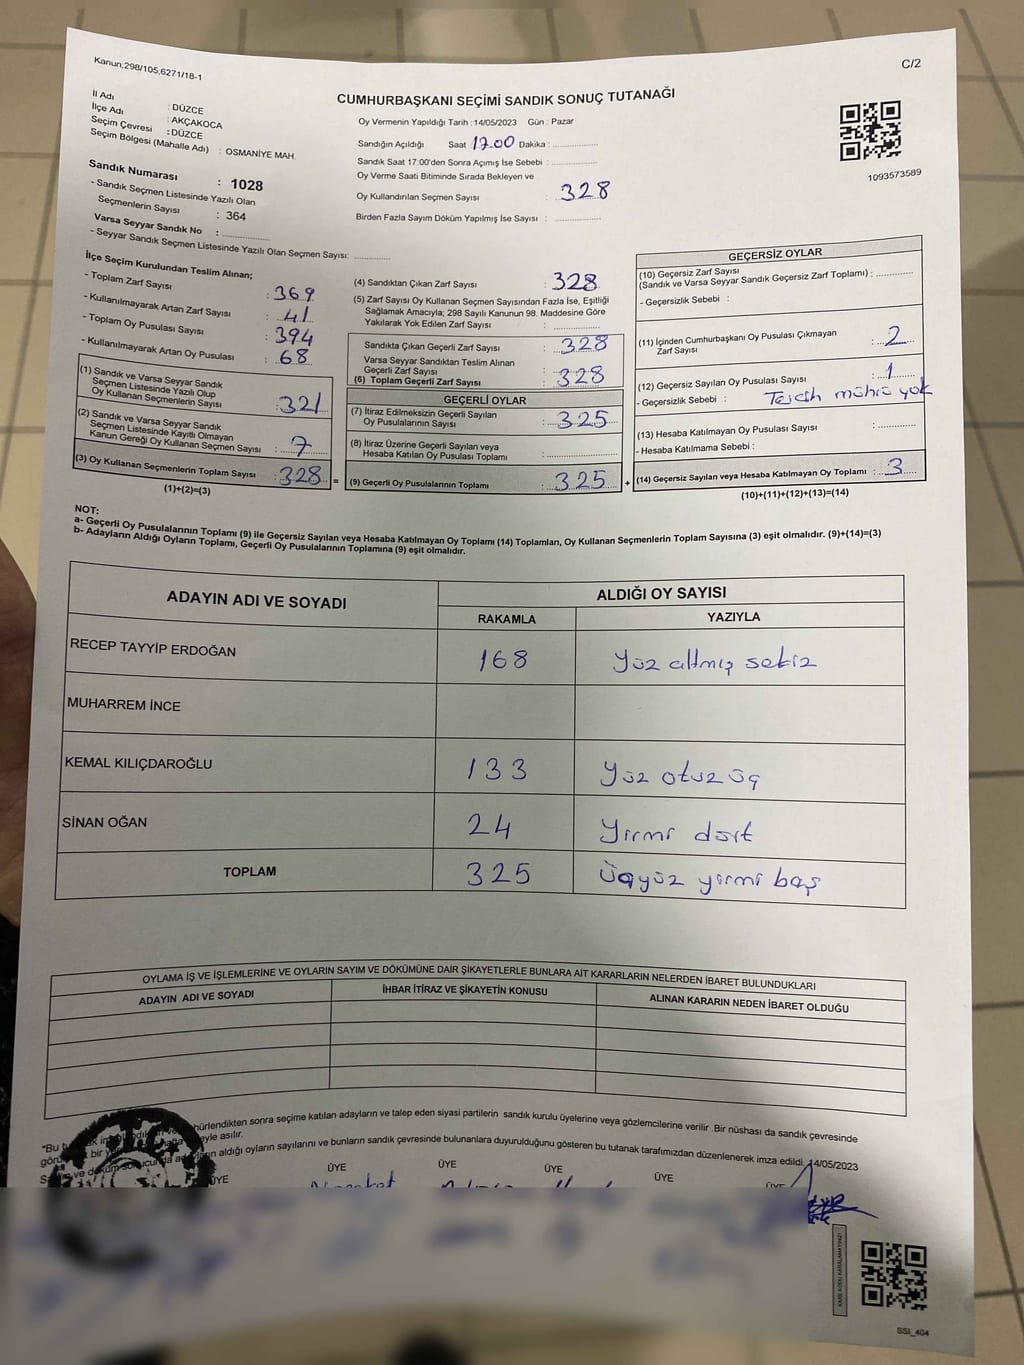 Kanun;298/105,6271/18-1
C/2
İl Adı : DÜZCE
İlçe Adı : AKÇAKOCA
Seçim Çevresi : DÜZCE
Seçim Bölgesi (Mahalle Adı) : OSMANİYE MAH.
Sandık Numarası : 1028
- Sandık Seçmen Listesinde Yazılı Olan
Seçmenlerin Sayısı : 364
Varsa Seyyar Sandık No : ..............
- Seyyar Sandık Seçmen Listesinde Yazılı Olan Seçmen Sayısı: ..............
CUMHURBAŞKANI SEÇİMİ SANDIK SONUÇ TUTANAĞI
Oy Vermenin Yapıldığı Tarih : 14/05/2023 Gün : Pazar
Sandığın Açıldığı Saat 17.00 Dakika : ..............
Sandık Saat 17:00'den Sonra Açımış İse Sebebi : ..............
Oy Verme Saati Bitiminde Sırada Bekleyen ve
Oy Kullandırılan Seçmen Sayısı : 328
Birden Fazla Sayım Döküm Yapılmış İse Sayısı : ..............
1093573589
İlçe Seçim Kurulundan Teslim Alınan;
- Toplam Zarf Sayısı : 369
- Kullanılmayarak Artan Zarf Sayısı : 41
- Toplam Oy Pusulası Sayısı : 394
- Kullanılmayarak Artan Oy Pusulası : 68
(1) Sandık ve Varsa Seyyar Sandık
Seçmen Listesinde Yazılı Olup
Oy Kullanan Seçmenlerin Sayısı : 321
(2) Sandık ve Varsa Seyyar Sandık
Seçmen Listesinde Kayıtlı Olmayan
Kanun Gereği Oy Kullanan Seçmen Sayısı : 7
(3) Oy Kullanan Seçmenlerin Toplam Sayısı : 328 =
(1)+(2)=(3)
(4) Sandıktan Çıkan Zarf Sayısı : 328
(5) Zarf Sayısı Oy Kullanan Seçmen Sayısından Fazla İse, Eşitliği
Sağlamak Amacıyla; 298 Sayılı Kanunun 98. Maddesine Göre
Yakılarak Yok Edilen Zarf Sayısı : ..............
Sandıkta Çıkan Geçerli Zarf Sayısı : 328
Varsa Seyyar Sandıktan Teslim Alınan
Geçerli Zarf Sayısı
(6) Toplam Geçerli Zarf Sayısı : 328
GEÇERLİ OYLAR
(7) İtiraz Edilmeksizin Geçerli Sayılan
Oy Pusulalarının Sayısı : 325
(8) İtiraz Üzerine Geçerli Sayılan veya
Hesaba Katılan Oy Pusulası Toplamı : ..............
(9) Geçerli Oy Pusulalarının Toplamı : 325 +
GEÇERSİZ OYLAR
(10) Geçersiz Zarf Sayısı
(Sandık ve Varsa Seyyar Sandık Geçersiz Zarf Toplamı) : ..............
- Geçersizlik Sebebi :
(11) İçinden Cumhurbaşkanı Oy Pusulası Çıkmayan
Zarf Sayısı : 2
(12) Geçersiz Sayılan Oy Pusulası Sayısı : 1
- Geçersizlik Sebebi : Tercih mührü yok
(13) Hesaba Katılmayan Oy Pusulası Sayısı : ..............
- Hesaba Katılmama Sebebi :
(14) Geçersiz Sayılan veya Hesaba Katılmayan Oy Toplamı : 3
(10)+(11)+(12)+(13)=(14)
NOT:
a- Geçerli Oy Pusulalarının Toplamı (9) ile Geçersiz Sayılan veya Hesaba Katılmayan Oy Toplamı (14) Toplamları, Oy Kullanan Seçmenlerin Toplam Sayısına (3) eşit olmalıdır. (9)+(14)=(3)
b- Adayların Aldığı Oyların Toplamı, Geçerli Oy Pusulalarının Toplamına (9) eşit olmalıdır.
ADAYIN ADI VE SOYADI ALDIĞI OY SAYISI
RAKAMLA YAZIYLA
RECEP TAYYİP ERDOĞAN 168 Yüz altmış sekiz
MUHARREM İNCE
KEMAL KILIÇDAROĞLU 133 Yüz otuz üç
SİNAN OĞAN 24 Yirmi dört
TOPLAM 325 Üçyüz yirmi beş
OYLAMA İŞ VE İŞLEMLERİNE VE OYLARIN SAYIM VE DÖKÜMÜNE DAİR ŞİKAYETLERLE BUNLARA AİT KARARLARIN NELERDEN İBARET BULUNDUKLARI
ADAYIN ADI VE SOYADI İHBAR İTİRAZ VE ŞİKAYETİN KONUSU ALINAN KARARIN NEDEN İBARET OLDUĞU
"Bu hürlendikten sonra seçime katılan adayların ve talep eden siyasi partilerin sandık kurulu üyelerine veya gözlemcilerine verilir .Bir nüshası da sandık çevresinde
bir asılır.
aldığı oyların sayılarını ve bunların sandık çevresinde bulunanlara duyurulduğunu gösteren bu tutanak tarafımızdan düzenlenerek imza edildi. 14/05/2023
ÜYE ÜYE ÜYE ÜYE ÜYE ÜYE
SSI_404